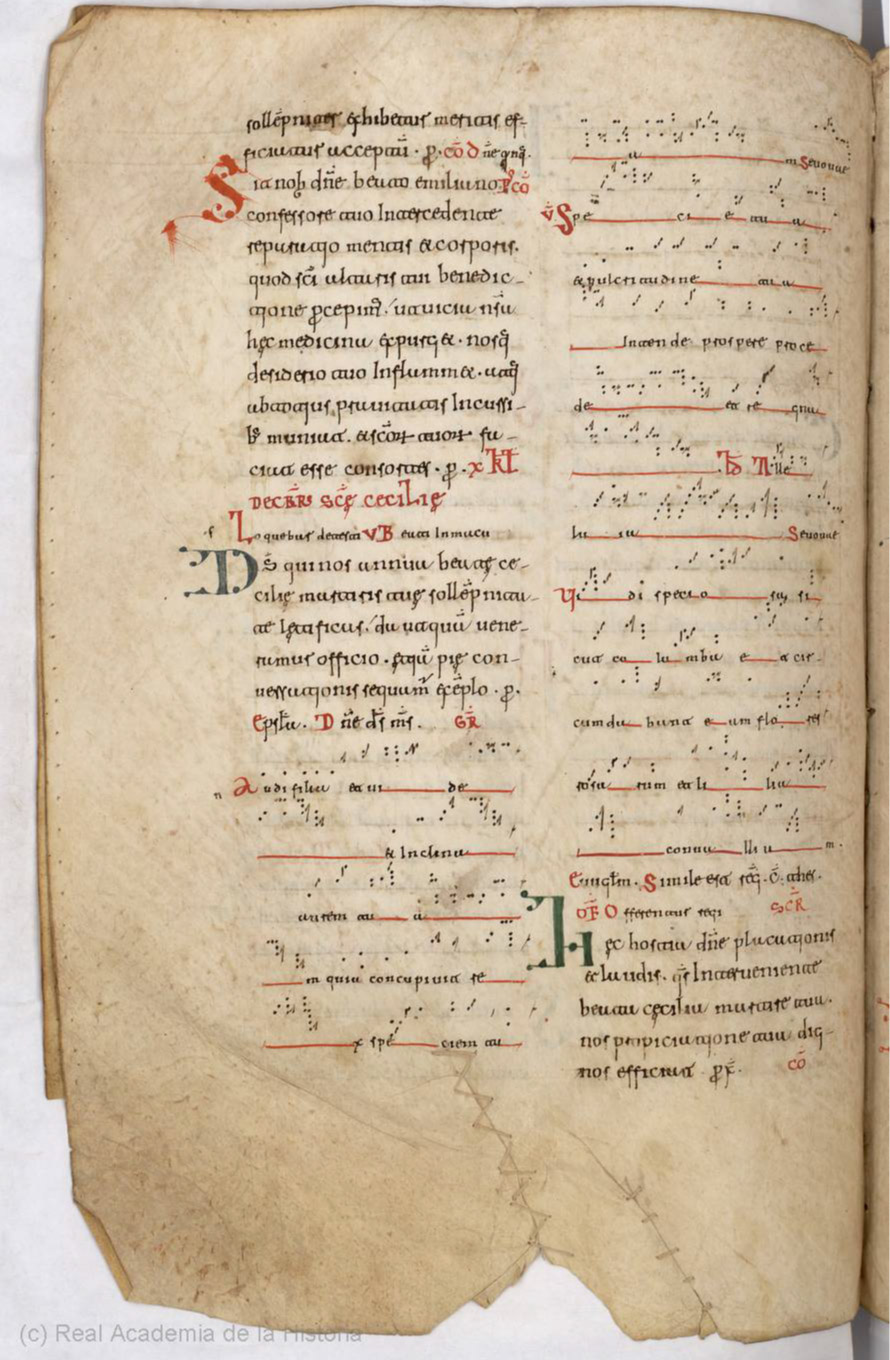 sollẽpnitas exhibeatur meritis ef-
ficiatur acceptũ. ꝓ. cõ Dñe qnq̃.
Sit nob dñe beato emiliano Pcõ
confessore tuo Intercedente
reparatio mentis & corporis.
quod sc̃i altaris tui benedic-
tione ꝓcepim᷒. ut uicia nr̃a
hęc medicina expurg&. nosq̃
desiderio tuo Inflamm&. utq̃
ab totius prauitatis Incussi-
muniat. & sc̃oꝝ tuoꝝ fa-
ciat esse consortes. ꝓ. x kł
DECBRS SCE CECILIĘ
Loquebar detesti VB eati Inmacu
Ds̃ qui nos annua beatę ce-
cilię martiris tuę sollẽpnita-
te lętificas. da ut quã uene-
ramur officio. etiã pię con-
uersationis sequam᷒ exẽplo. ꝓ.
Epsła. Dñe ds̃ ms̃. GR
Audi filia et ui de
& Inclina
aurem tu a
m quia concupiuit re
x spe ciem tu
a m Seuouae
V Spe ci e tu a
& pulcritudine tu a
Intende prospere proce
de et re gna
Alle
lu ia Seuouae
Vi di specio sa si
cut co lu mba a scen
cumda bant e am flo res
rosa rum et li lia
conua lli u m.
Euuglm. Simile est reg. c. thes.
OF Offerentur regi SCR
Hęc hostia dñe placationis
& laudis. qs̃ Interueniente
beata cęcilia martire tua.
nos propiciatione tua dig-
nos efficiat. ꝓ. cõ
(c) Real Academia de la Historia